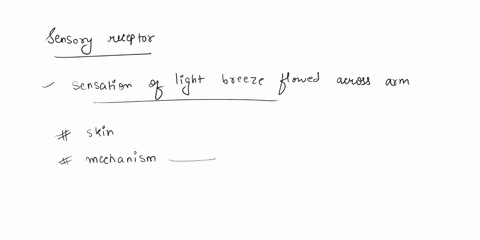 Sensory receptor
✓ Sensation of light breeze flowed across arm
# skin
# mechanism ____